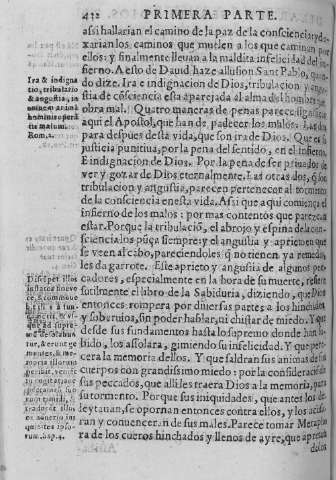 432 PRIMERA PARTE.
assi hallarian el camino de la paz de la consciencia: y de
xarian los caminos que muelen a los que caminan por
ellos: y finalmente lleuan a la maldita infelicidad del in
fierno. A esto de Dauid haze allusion Sant Pablo, quan
do dize. Ira e indignacion de Dios, tribulacion y angu
stia de cõsciencia esta aparejada al alma del hombre que
obra mal. Quatro maneras de penas parece significar
aqui el Apostol, que han de padecer los malos. Las dos
para despues desta vida, que son ira de Dios. Que es su
justicia punitiua, por la pena del sentido, en el infierno.
E indignacion de Dios. Por la pena de ser priuados de
ver y gozar de Dios eternalmente. Las otras dos, q̃ son
tribulacion y angustia, parecen pertenecer al tormento
de la consciencia en esta vida. Assi que aqui comiença el
infierno de los malos: por mas contentos que parezcan
estar. Porque la tribulaciõ, el abrojo y espina de la con-
sciencia los pũça siempre: y el angustia y aprieto en que
se veen al cabo, pareciendoles q̃ no tienen ya remedio,
les da garrote. Este aprieto y angustia de algunos pe-
cadores, especialmente en la hora de su muerte, refiere
sutilmente el libro de la Sabiduria, diziendo, que Dios
entonces rompera por diuersas partes a los hinchados
y soberuios, sin poder hablar, ni chistar de miedo. Y que
desde sus fundamentos hasta lo supremo donde han su
bido, los assolara, gimiendo su infelicidad. Y que pere-
cera la memoria dellos. Y que saldran sus animas de los
cuerpos con grandissimo miedo: por la consideracion de
sus peccados, que alli les traera Dios a la memoria, para
su tormento. Porque sus iniquidades, que antes los de-
leytauan, se opornan entonces contra ellos, y los acusa-
ran y conuencerã de sus males. Parece tomar Metapho
ra de los cueros hinchados y llenos de ayre, que apreta
dolos
Ira & indigna
tio, tribulatio
& angustia, in
omnem animã
hominis operã
tis malum.
Rom. 2.